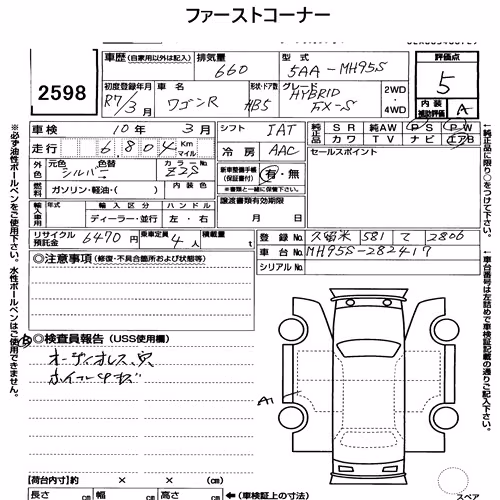 ファーストコーナー
2598
車歴 (自家用以外は記入) 排気量 660 型式 5AA-MH95S 評価点 5
初度登録年月 R7/3月 車名 ワゴンR 形状・ドア数 HB5 グレード HYBRID FX-S 2WD・4WD 内装補助評価 A
車検 10年 3月 シフト IAT 純正品 SR 純AW PS PW
走行 6,804 Km マイル 冷房 AAC カワ TV ナビ エアB
外色 元色 シルバー 色替 カラーNo. Z2S 新車整備手帳(保証書付) 有・無 ※書類と一緒に保管下さい。 セールスポイント
燃料 ガソリン・軽油・( ) 内装色
輸入車用 年式 輸入区分 ハンドル 譲渡書類有効期限
ディーラー・並行 左・右 月 日
リサイクル預託金 6470円 乗車定員 4人 積載量 t
登録 久留米 581 て 2806
車台No. MH95S-282417
シリアルNo.
◎注意事項 (修復・不具合箇所および状態等)
◎検査員報告 (USS使用欄)
オーディオレス,穴
ホイールキズ
A1
【荷台内寸】 × ×
長さ cm 幅 cm 高さ cm ←(車検証上の寸法)
スペア
※必ず油性ボールペンをご使用下さい。水性ボールペンはご使用できません。
←純正品に限り○をつけて下さい。
←車台番号は左詰めで車検証の通りご記入下さい。